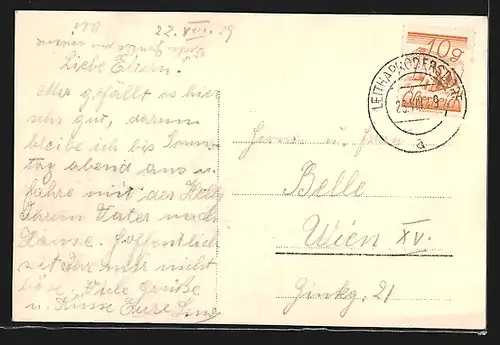 22. VIII. 29
Liebe Eltern!
Mir gefällt es hier
sehr gut, darum
bleibe ich bis Sonn-
tag abend aus u.
fahre mit der
ihrem Vater nach
Hause. Hoffentlich
seit Ihr mir nicht
böse. Viele Grüße
u. Küsse Eure
10g
LEITHAPRODERSDORF
a
Herrn u.
Belle
Wien XV.
Ginkg. 21